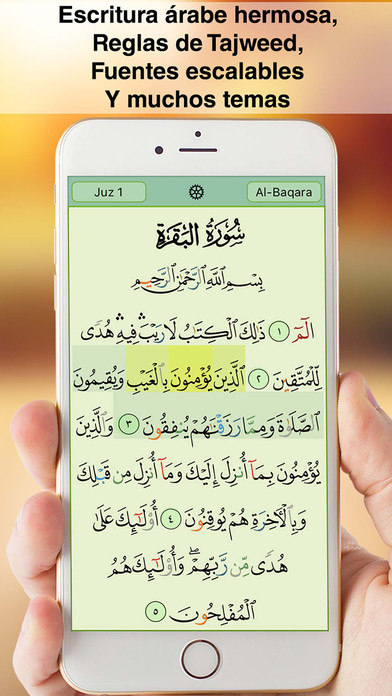 Escritura árabe hermosa,
Reglas de Tajweed,
Fuentes escalables
Y muchos temas
Juz 1
Al-Baqara
سُورَةُ البَقَرَةِ
بِسْمِ اللَّهِ الرَّحْمَٰنِ الرَّحِيمِ
الٓمٓ ١ ذَٰلِكَ الْكِتَٰبُ لَا رَيْبَ ۛ فِيهِ ۛ هُدًى
لِّلْمُتَّقِينَ ٢ الَّذِينَ يُؤْمِنُونَ بِالْغَيْبِ وَيُقِيمُونَ
الصَّلَوٰةَ وَمِمَّا رَزَقْنَٰهُمْ يُنفِقُونَ ٣ وَالَّذِينَ
يُؤْمِنُونَ بِمَآ أُنزِلَ إِلَيْكَ وَمَآ أُنزِلَ مِن قَبْلِكَ
وَبِالْأَخِرَةِ هُمْ يُوقِنُونَ ٤ أُوْلَٰٓئِكَ عَلَىٰ
هُدًى مِّن رَّبِّهِمْ ۖ وَأُوْلَٰٓئِكَ هُمُ
الْمُفْلِحُونَ ٥